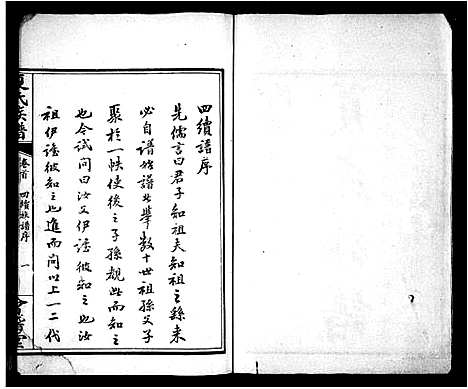 四續譜序
先儒言曰君子知祖夫知祖之繇来
必自譜始譜者舉數十世祖孫父子
聚於一帙使後之子孫覩此而知之
也今試問曰汝父伊誰彼知之也汝
祖伊誰彼知之也進而問以上一二代
氏族譜
卷首
四續族譜序
一